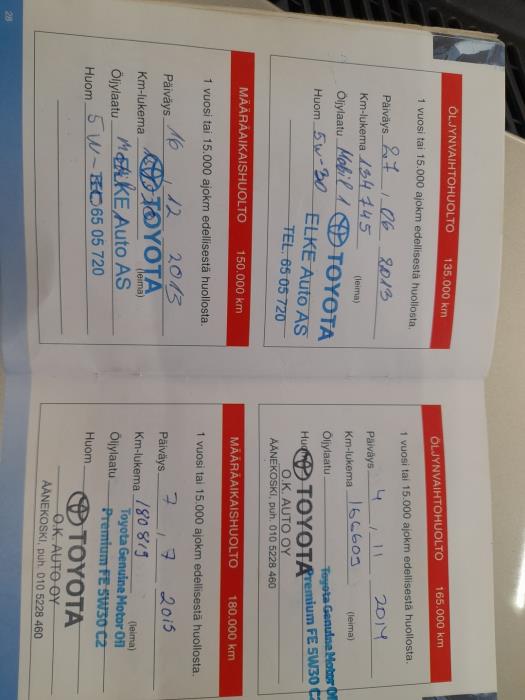 ÖLJYNVAIHTOHUOLTO 135.000 km
1 vuosi tai 15.000 ajokm edellisestä huollosta.
Päiväys 27 , 06 2013
Km-lukema 134745
(leima)
Öljylaatu Mobil 1 TOYOTA
Huom 5w-30 ELKE Auto AS
TEL. 65 05 720
MÄÄRÄAIKAISHUOLTO 150.000 km
1 vuosi tai 15.000 ajokm edellisestä huollosta.
Päiväys 16 , 12 2013
Km-lukema TOYOTA
(leima)
Öljylaatu ELKE Auto AS
Huom 5w- 65 05 720
28
ÖLJYNVAIHTOHUOLTO 165.000 km
1 vuosi tai 15.000 ajokm edellisestä huollosta.
Päiväys 4 , 11 2014
Km-lukema 166609
(leima)
Öljylaatu Toyota Genuine Motor Oil
Huom TOYOTA Premium FE 5W30 C2
O.K. AUTO OY
ÄÄNEKOSKI, puh. 010 5228 460
MÄÄRÄAIKAISHUOLTO 180.000 km
1 vuosi tai 15.000 ajokm edellisestä huollosta.
Päiväys 7 , 7 2015
Km-lukema 180819
(leima)
Toyota Genuine Motor Oil
Öljylaatu Premium FE 5W30 C2
Huom TOYOTA
O.K. AUTO OY
ÄÄNEKOSKI, puh. 010 5228 460